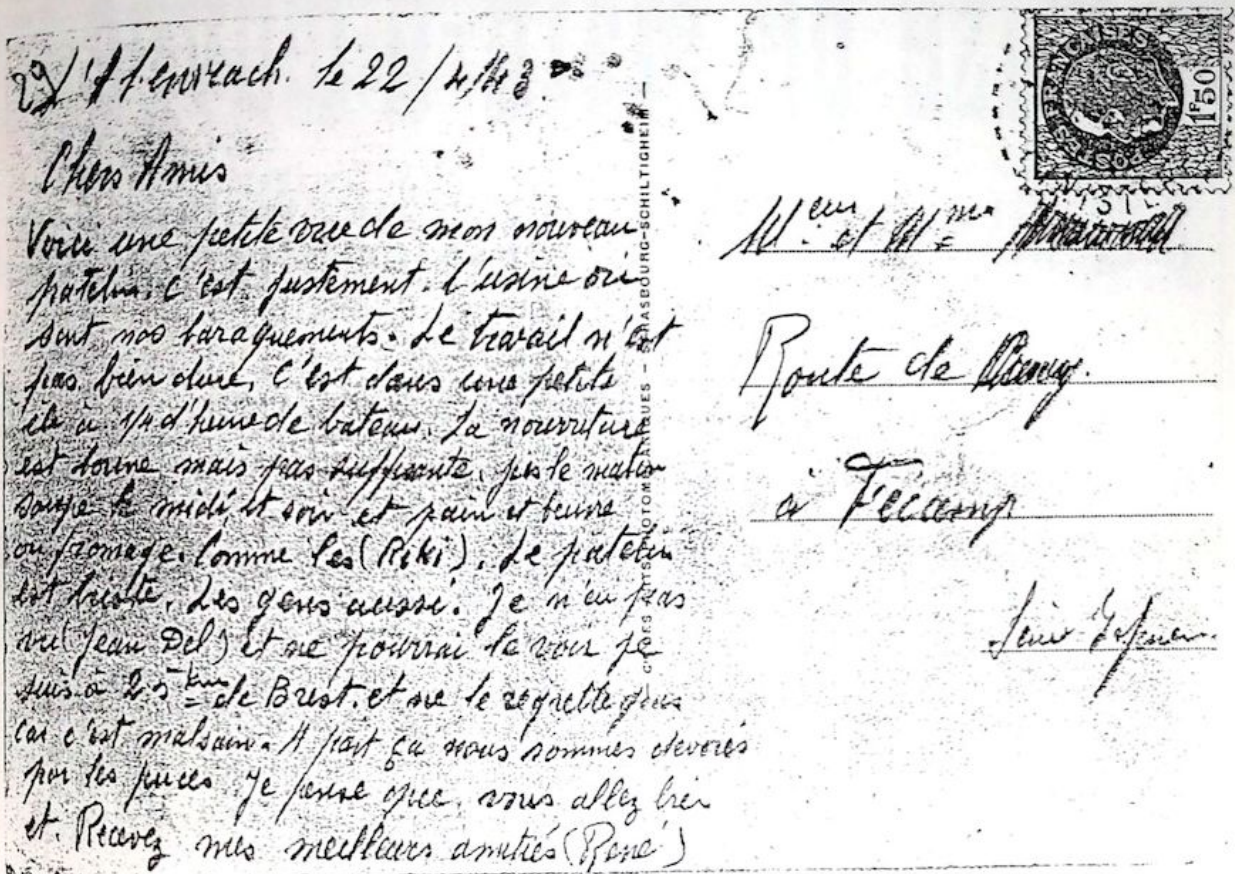 29/ l'Aberwrach. le 22/4/43
Chers Amis
Voici une petite vue de mon nouveau
patelin. c'est justement. l'usine où
sont nos baraquements. Le travail n'est
pas bien dure, C'est dans une petite
île à 1/4 d'heure de bateau. La nourriture
est bonne mais pas suffisante, jus le matin
soupe le midi et soir et pain et beurre
ou fromage. Comme les (Riki). Le patelin
est triste. Les gens aussi. Je n'ai pas
vu (Jean Del) et ne pourrai le voir je
suis à 25 km de Brest. et ne le regrette pas
car c'est malsain. A part ça nous sommes dévorés
par les puces Je pense que. vous allez bien
et. Recevez mes meilleurs amitiés (René)
CIE DES ARTS PHOTOMÉCANIQUES — STRASBOURG-SCHILTIGHEIM —
POSTES FRANÇAISES
1F50
M.eur et Mme
Route de
à Fécamp
Seine Infre